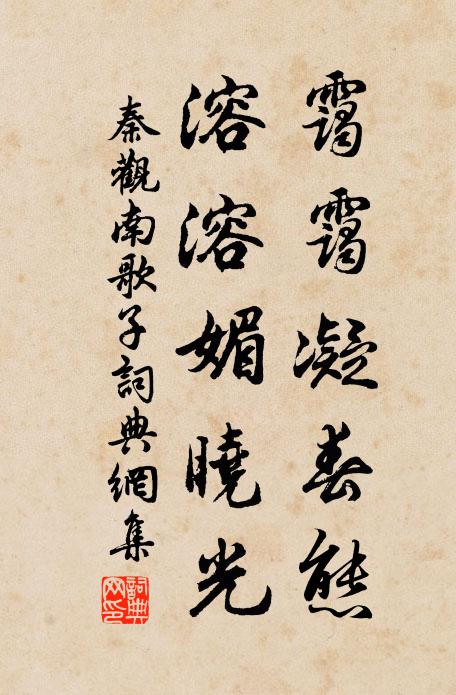 靄靄凝春態
溶溶媚曉光
秦觀南歌子詞典網集
詞典網印